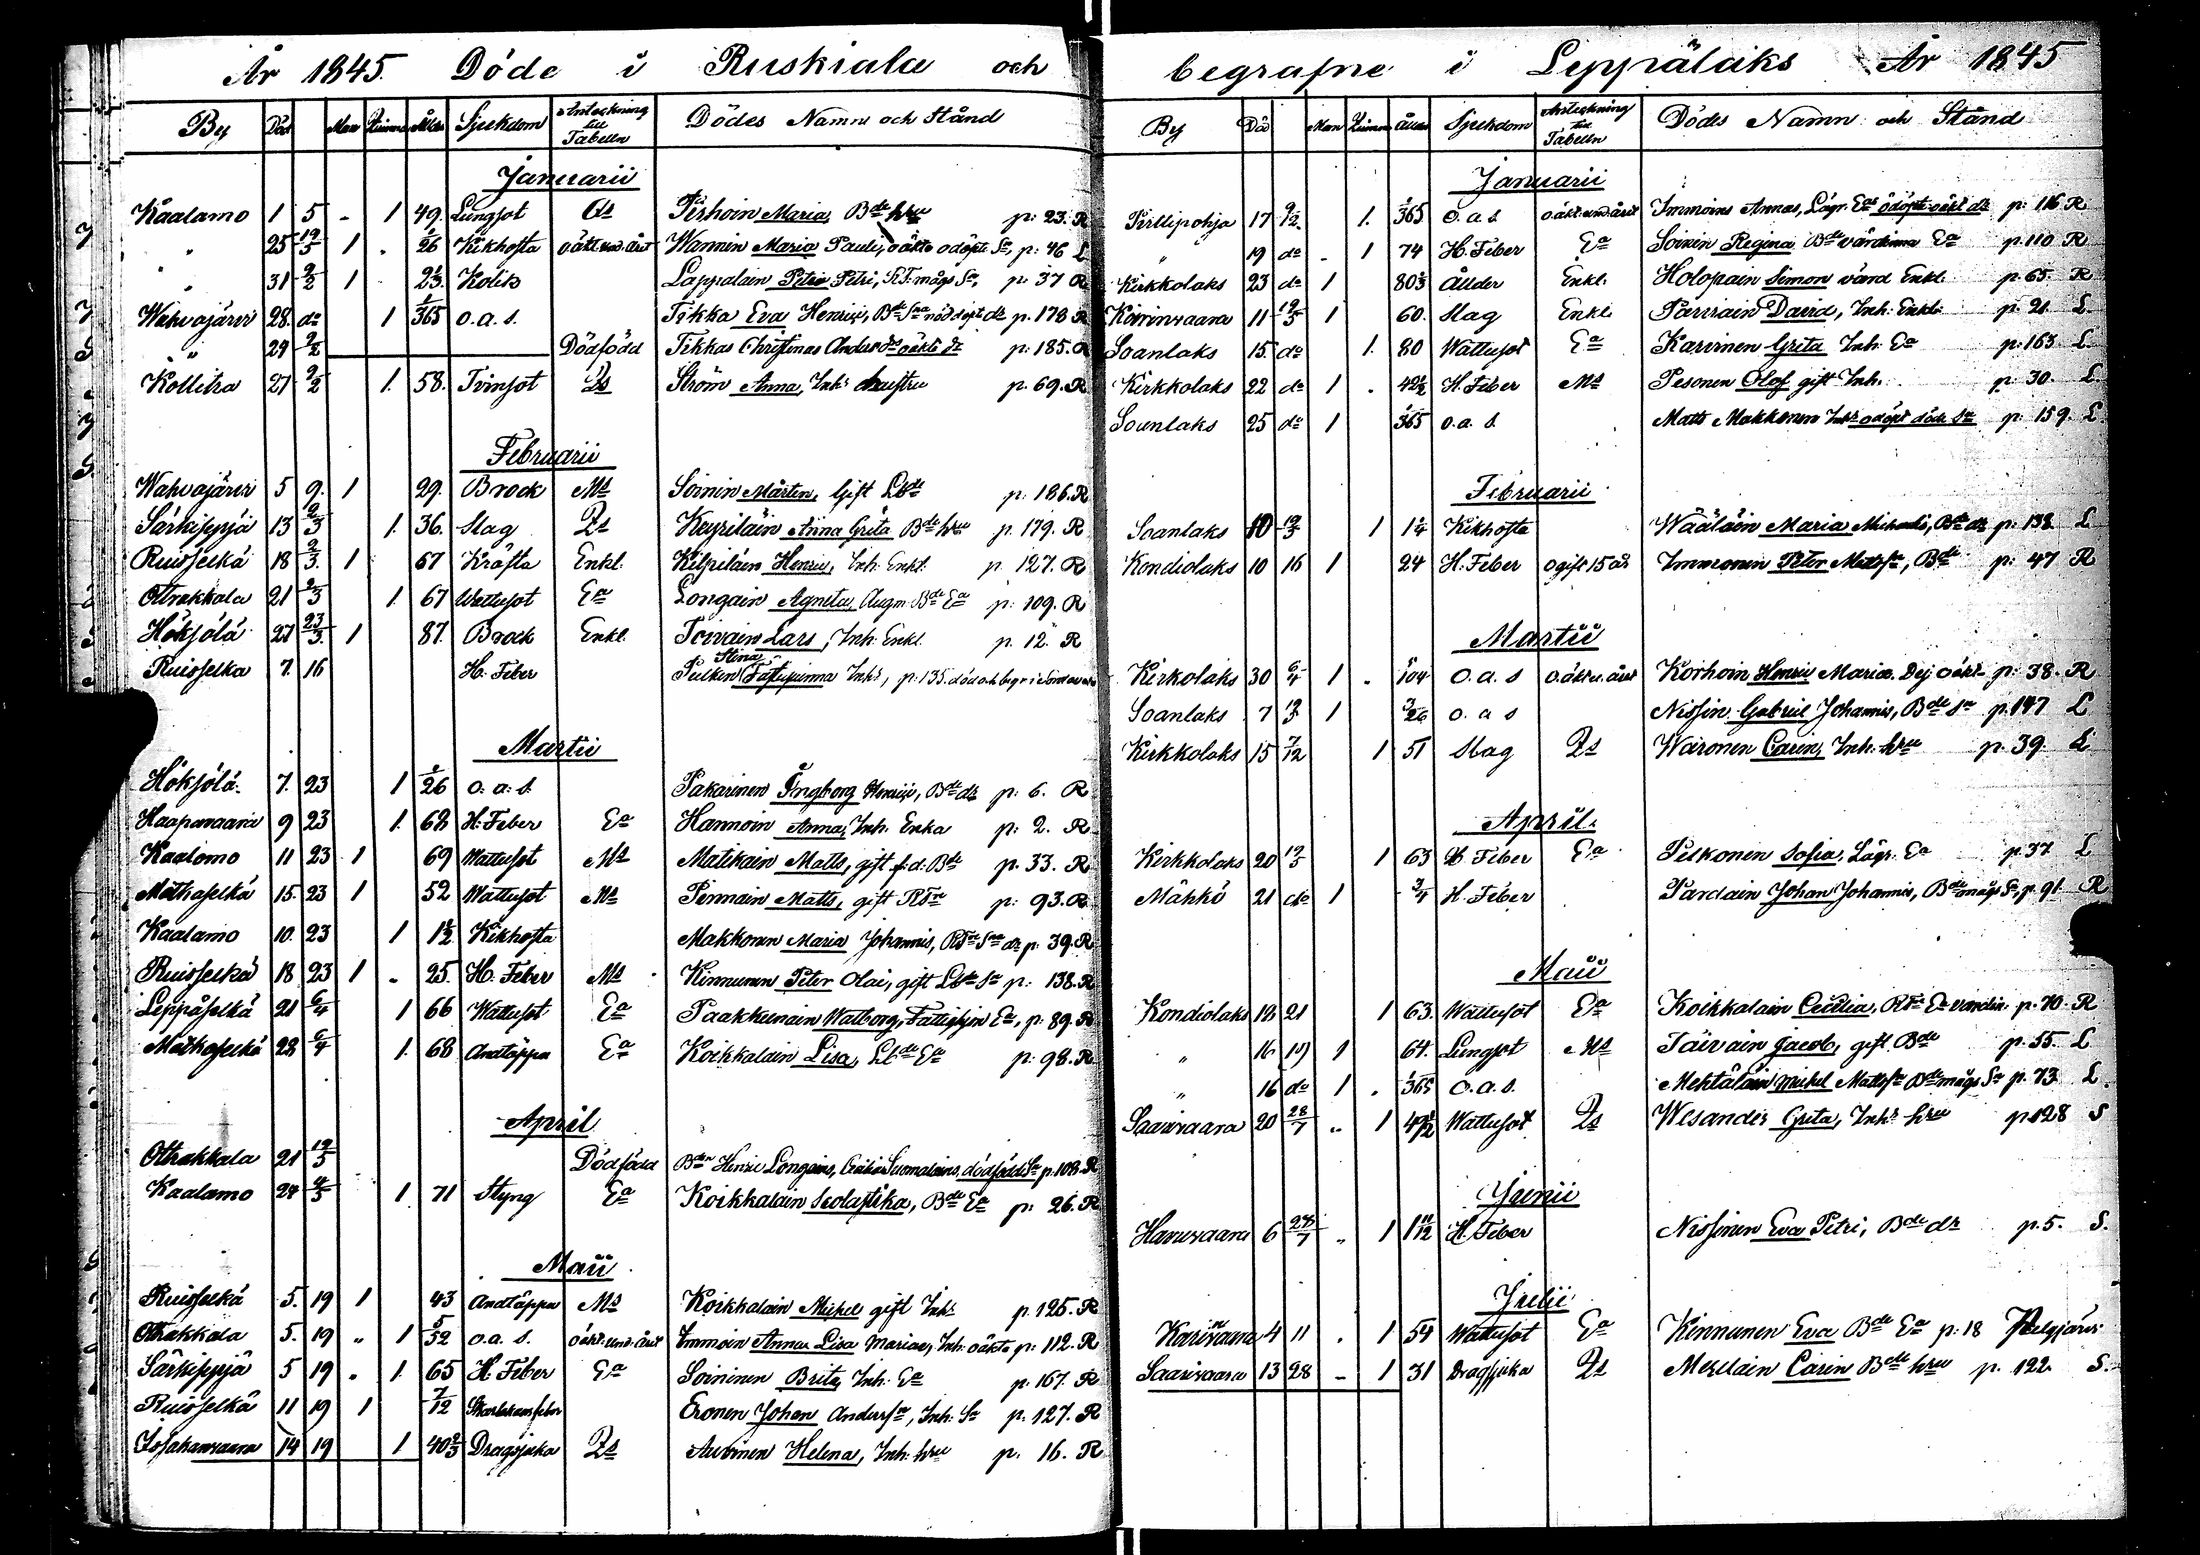 År 1845. Döde i Ruskiala och
By Död Man Qvinna Ålder Sjukdom Anteckning till Tabellen Dödes Namn och Stånd
Januarii
Kaalamo 1 5 - 1 49. Lungsot Qs Maria, Bde hru p: 23. R
" 25 12/5 1 . 1/26 Kikhosta oäkt und. året Wannin Maria Pauli, oäkta odöpt Sn, p: 46 L
" 31 2/2 1 2 1/2 Kolik Lappalain Petri Petri, mågs Sn, p: 37 R
Wahvajärvi 28. do 1 1/365 o.a.s. Tikka Eva Henrici, Bde nöddöpt dr p. 178 R
" 29 2/2 Dödfödd Tikkas Christinas oäkta dr p: 185. R
Kollitra 27 2/2 1. 58. Tvinsot Qs Ström Anna, Inhs hustru p. 69. R
Februarii
Wahvajärvi 5 9. 1 29. Brock Ms Soinin Mårten, Gift p: 186. R
Särkisyrjä 13 2/3 1. 36. Slag Qs Keyriläin Anna Greta Bde hru p. 179. R
Ruisselkä 18 2/3. 1 67 Kräfta Enkl. Kilpiläin Henric, Inh. Enkl. p. 127. R
Otrakkala 21 2/3 1. 67 Wattusot Ea Longain Agneta, Augm. Bde Ea p: 109. R
Höksölä 27 23/3. 1 87. Brock Enkl. Toivain Lars, Inh: Enkl. p. 12. R
Ruisselka 7. 16 H. Feber Pulkin Stina Inhs, p. 135. död och begr: i
Martii
Höksölä. 7. 23 1 2/26 o. a. s. Pakarinen Ingborg Henrici, Bde dr p: 6. R
Haapavaara 9 23 1. 68 H. Feber Ea Hannoin Anna, Inh: Enka p: 2. R
Kaalamo 11 23 1 69 Wattusot Ms Matikain Matts, gift f.d. Bde p. 33. R
Matkaselkä 15. 23 1 52 Wattusot Ms Pennain Matts, gift p: 93. R
Kaalamo 10. 23 1 1 1/2 Kikhosta Makkonen Maria Johannis, dr p: 39. R
Ruisselkä 18 23 1 - 25. H. Feber Ms Kinnunen Peter Olai, gift p: 138. R
Leppäselkä 21 6/4 1 66 Wattusot Ea Paakkunain Walborg, Fattighjon Ea, p. 89. R
Matkaselkä 28 6/4 1. 68 Andtäppa Ea Koikkalain Lisa, Ea p: 98. R
April
Otrakkala 21 12/5 Dödfödd Henric Longains, Suomalains dödfödde Sn p. 108. R
Kaalamo 24 4/5 1. 71 Styng Ea Koikkalain Scolastika, Bde Ea p: 26. R
Maii
Ruisselkä 5. 19 1 43 Andtäppa Ms Koikkalain Michel gift Inhs p. 125. R
Otrakkala 5. 19 " 1 5/52 o.a.s. oäkt. und. året Immoin Anna Lisa Mariae, Inh: oäkta p: 112. R
Särkisyrjä 5 19 " 1. 65 H. Feber Ea Soininen Brita, Inh: Ea p. 167. R
Ruisselkä 11 19 1 7/12 Eronen Johan Anderssn, Inh: Sn p: 127. R
14 19 1 40 2/3 Dragsjuka Qs Auvinen Helena, Inh: hru p. 16. R
begrafne i Leppälaks År 1845
By Död Man Qvinna Ålder Sjukdom Anteckning till Tabellen Dödes Namn och Stånd
Januarii
Pirttipohja 17 9/2. 1. 1/365 o.a.s oäkt und. året Immoins Annas, odöpt oäkt dr p: 116. R
" 19 do - 1 74 H. Feber Ea Soinin Regina Bde värdinna Ea p. 110 R
Kirkkolaks 23 do 1 80 1/2 Ålder Enkl. Holopain Simon värd Enkl. p. 65. R
Koirinvaara 11 12/5 1 60. Slag Enkl. Parviain David, Inh: Enkl. p. 21 L.
Soanlaks 15. do 1. 80 Wattusot Ea Karvinen Greta Inh: Ea p: 163. L.
Kirkkolaks 22 do 1 . 42 1/2 H. Feber Ms Pesonen Olof gift Inh. p: 30. L.
Soanlaks 25 do 1 1/365 o.a. s. Matts Makkonen Inhs odöpt död Sn p: 159. L.
Februarii
Soanlaks 10 12/5 1 1 1/4 Kikhosta Wääläin Maria Michaelis, Bde dr p: 138 L
Kondiolaks 10 16 1 24 H. Feber ogift 15 år Immonin Peter Mattssn, Bde p: 47 R
Martii
Kirkolaks 30 6/4 1 . 5/104 o.a.s oäkt u. året Korhoin Henric Mariae. oäkt p: 38. R
Soanlaks 7 12/5 1 3/26 o. a s Nissin Gabriel Johannis, Bde Sn p. 147 L
Kirkkolaks 15 7/12 1 51 Slag Qs Waronen Carin, Inh: hru p. 39. L
April.
Kirkkolaks 20 12/5 1 63 H. Feber Ea Pelkonen Sofia, Ea p. 37 L
Mähkö 21 do 1 3/4 H. Feber Pardain Johan Johannis, Bde mågs Sn, p. 91. R
Maii
Kondiolaks 18 21 1 63. Wattusot Ea Koikkalain Cecilia, Ea p. 70. R
" 16 19 1 64. Lungsot Ms Täiväin Jacob, gift Bde p. 55. L
" 16 do 1 . 1/365 o.a.s. Mehtäläin Michel Mattssn Bde mågs Sn p. 73. L.
Saarivaara 20 28/7 " 1 Wattusot Qs Wesander Greta, Inhs hru p. 128 S
Junii
Havuvaara 6 28/7 " 1 1 11/12 H. Feber Nissinen Eva Petri, Bde dr p. 5. S.
Julii
Karinvaara 4 11 . 1 54 Wattusot Ea Kinnunen Eva Bde Ea p: 18 Pelgjärvi
Saarivaara 13 28 - 1 31 Dragsjuka Qs Carin Bde hru p. 122. S.